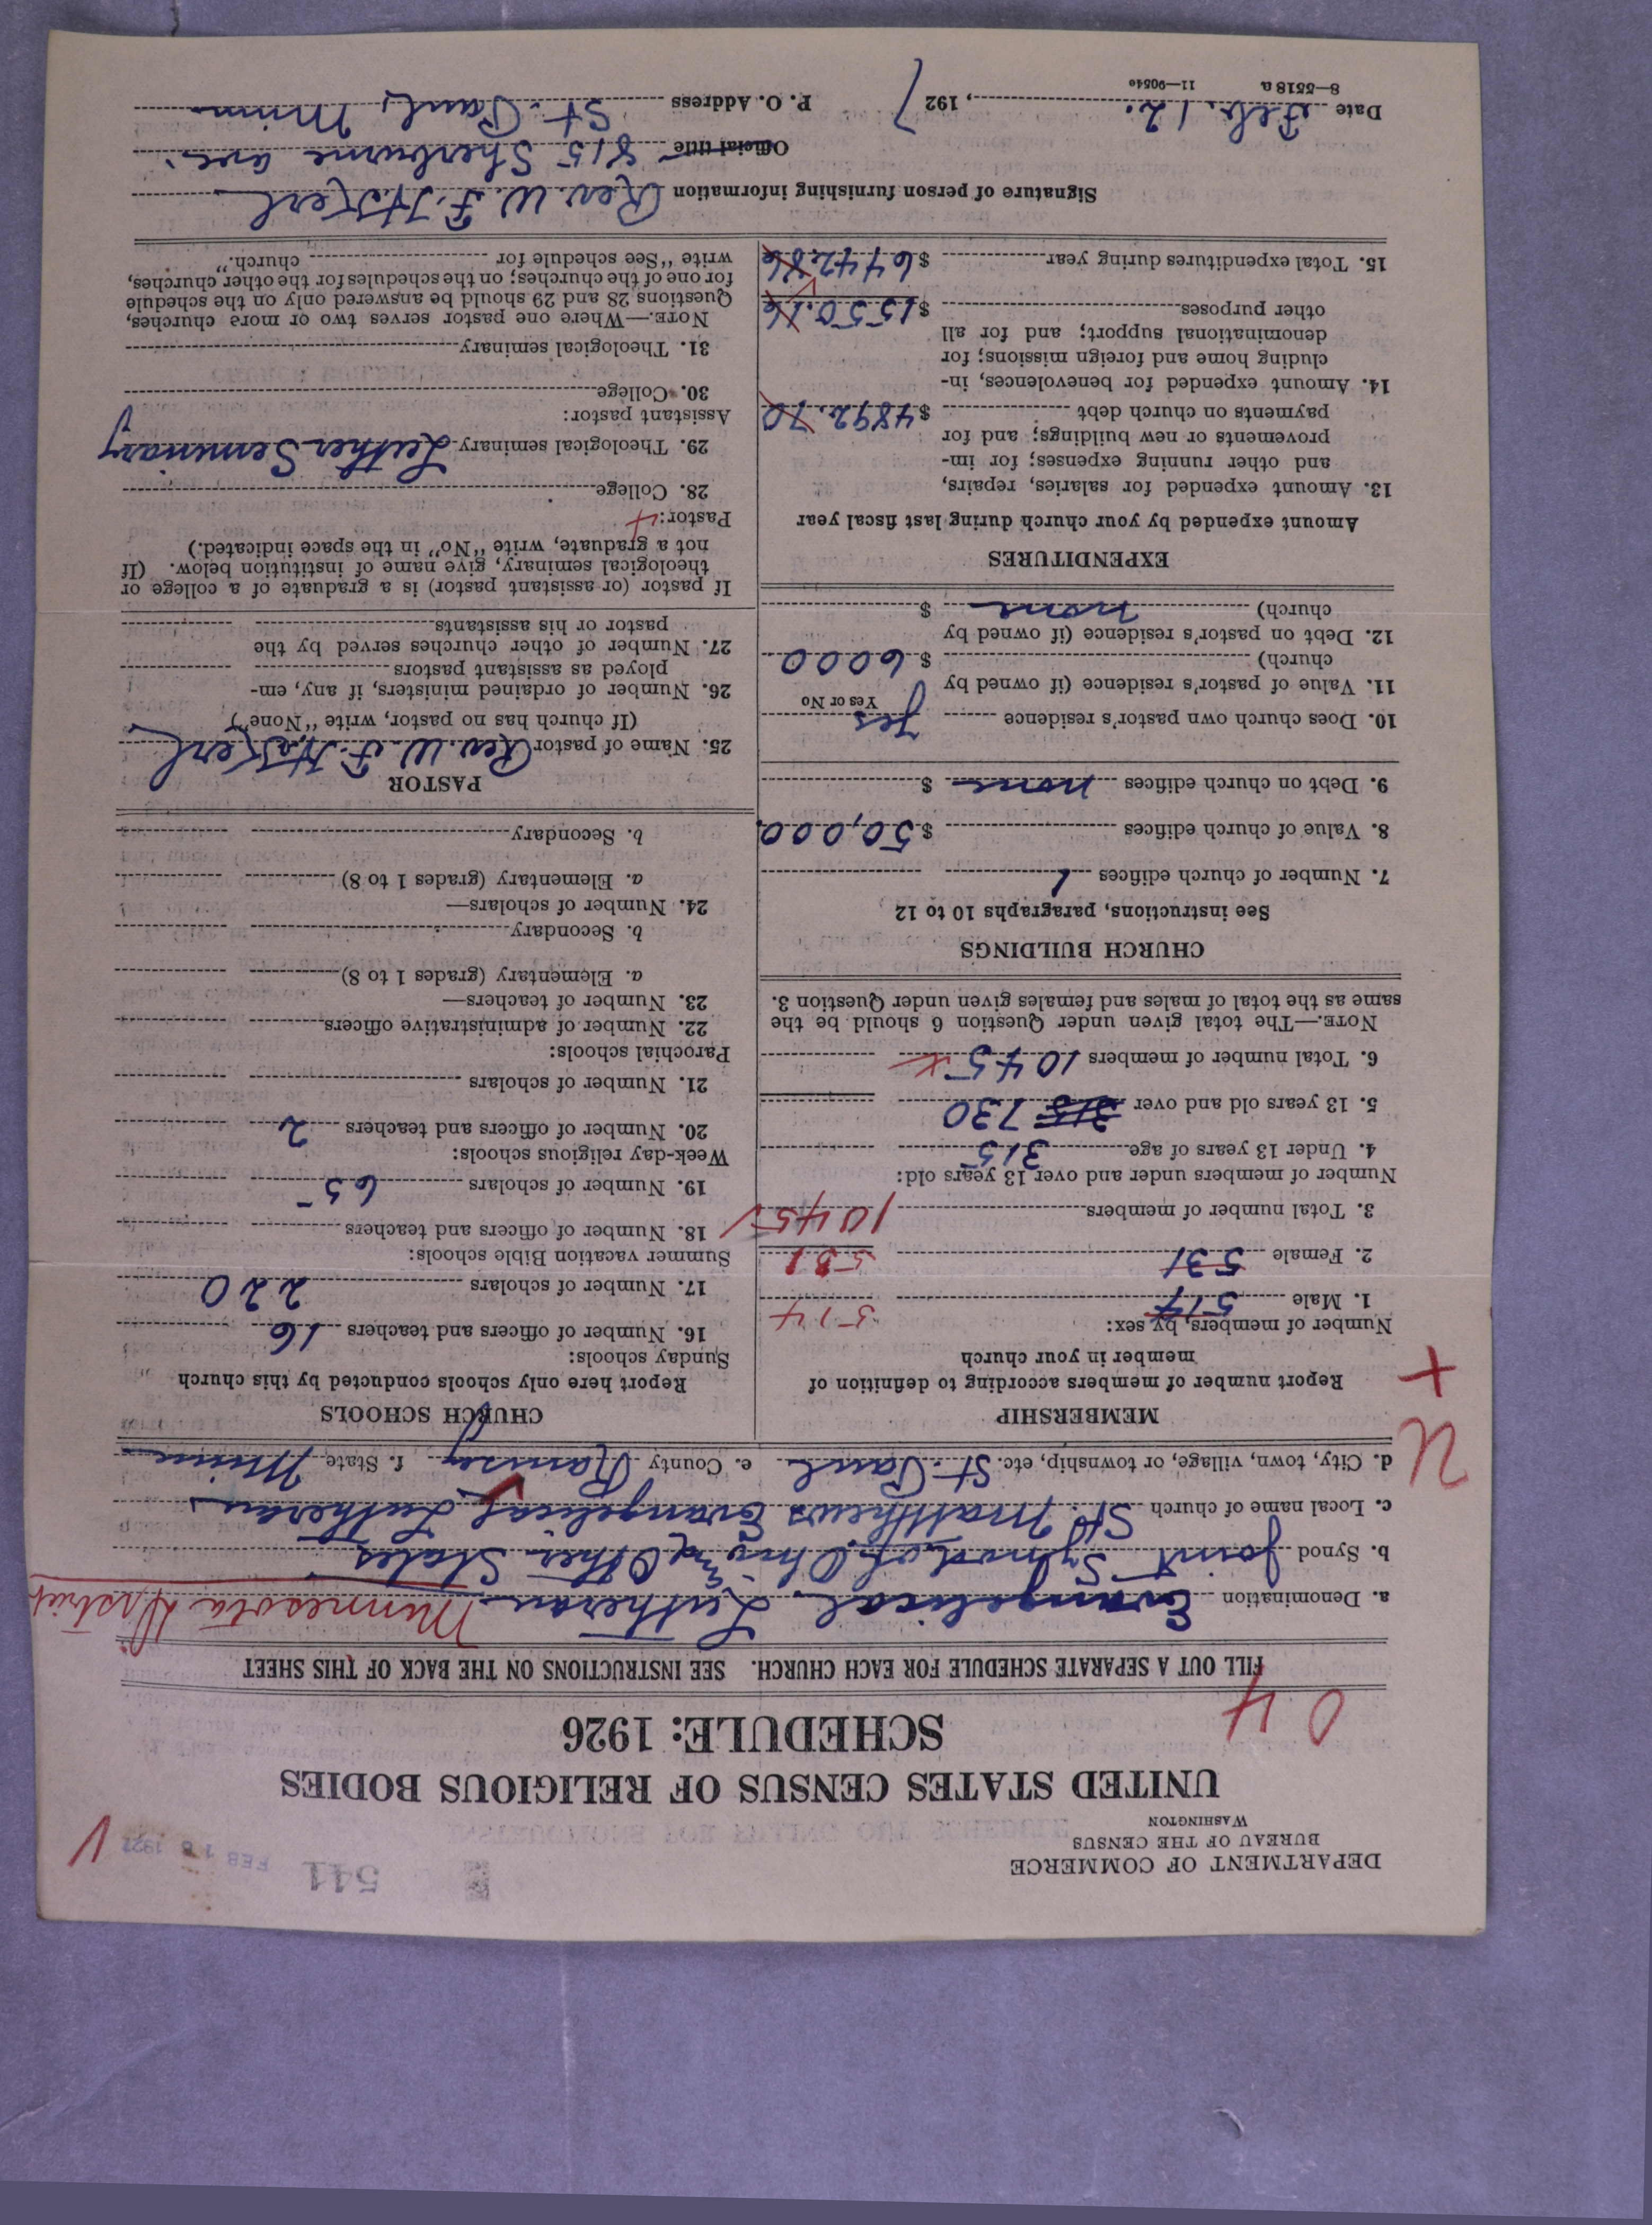 DEPARTMENT OF COMMERCE
BUREAU OF THE CENSUS
WASHINGTON
541
FEB 18 1927
UNITED STATES CENSUS OF RELIGIOUS BODIES
SCHEDULE: 1926
04
FILL OUT A SEPARATE SCHEDULE FOR EACH CHURCH. SEE INSTRUCTIONS ON THE BACK OF THIS SHEET
a. Denomination Evangelical Lutheran Minnesota District
b. Synod Joint Synod of Ohio & Other States
c. Local name of church St. Matthews Evangelical Lutheran
d. City, town, village, or township, etc. St. Paul e. County Ramsey f. State Minn
U
+
MEMBERSHIP
Report number of members according to definition of
member in your church
Number of members, by sex:
1. Male 514 514
2. Female 531 531
3. Total number of members 1045
Number of members under and over 13 years old:
4. Under 13 years of age 315
5. 13 years old and over 315 730
6. Total number of members 1045 x
NOTE.—The total given under Question 6 should be the
same as the total of males and females given under Question 3.
CHURCH BUILDINGS
See instructions, paragraphs 10 to 12
7. Number of church edifices 1
8. Value of church edifices $ 50,000
9. Debt on church edifices none $
10. Does church own pastor's residence yes
Yes or No
11. Value of pastor's residence (if owned by
church) $ 6000
12. Debt on pastor's residence (if owned by
church) none $
EXPENDITURES
Amount expended by your church during last fiscal year
13. Amount expended for salaries, repairs,
and other running expenses; for im-
provements or new buildings; and for
payments on church debt $ 4892.70
14. Amount expended for benevolences, in-
cluding home and foreign missions; for
denominational support; and for all
other purposes $ 1550.16
15. Total expenditures during year $ 6442.86
CHURCH SCHOOLS
Report here only schools conducted by this church
Sunday schools:
16. Number of officers and teachers 16
17. Number of scholars 220
Summer vacation Bible schools:
18. Number of officers and teachers
19. Number of scholars 65
Week-day religious schools:
20. Number of officers and teachers 2
21. Number of scholars
Parochial schools:
22. Number of administrative officers
23. Number of teachers—
a. Elementary (grades 1 to 8)
b. Secondary
24. Number of scholars—
a. Elementary (grades 1 to 8)
b. Secondary
PASTOR
25. Name of pastor Rev. W. F. H.
(If church has no pastor, write "None")
26. Number of ordained ministers, if any, em-
ployed as assistant pastors
27. Number of other churches served by the
pastor or his assistants
If pastor (or assistant pastor) is a graduate of a college or
theological seminary, give name of institution below. (If
not a graduate, write "No" in the space indicated.)
Pastor:
28. College
29. Theological seminary Luther Seminary
Assistant pastor:
30. College
31. Theological seminary
NOTE.—Where one pastor serves two or more churches,
Questions 28 and 29 should be answered only on the schedule
for one of the churches; on the schedules for the other churches,
write "See schedule for church."
Signature of person furnishing information Rev. W. F. H.
Official title 815 Sherburne ave.
Date Feb. 12. , 1927 P. O. Address St. Paul, Minn
8—5518 a 11—9054c